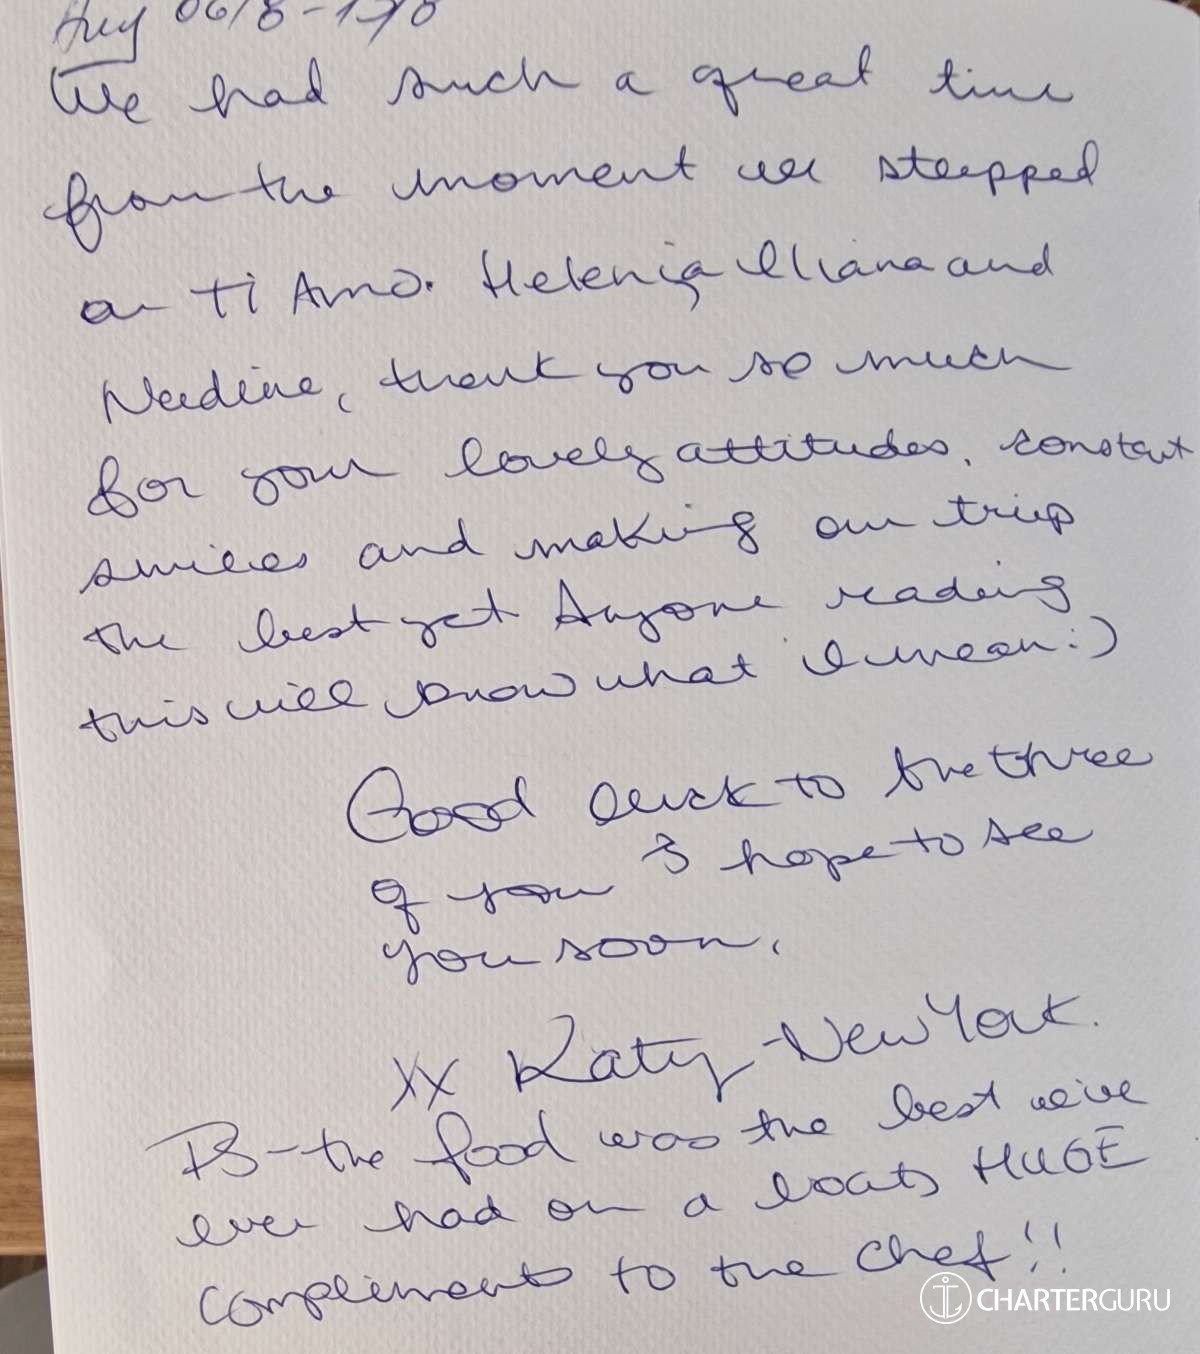 Aug 06/8 -
We had such a great time
from the moment we stepped
on Ti Amo. Helenia, Iliana and
Nadine, thank you so much
for your lovely attitudes, constant
smiles and making our trip
the best yet Anyone reading
this will know what I mean :)
Good luck to the three
of you & hope to see
you soon.
XX Katy - New York.
PS - the food was the best we've
ever had on a boat, HUGE
compliments to the chef!!
CHARTERGURU